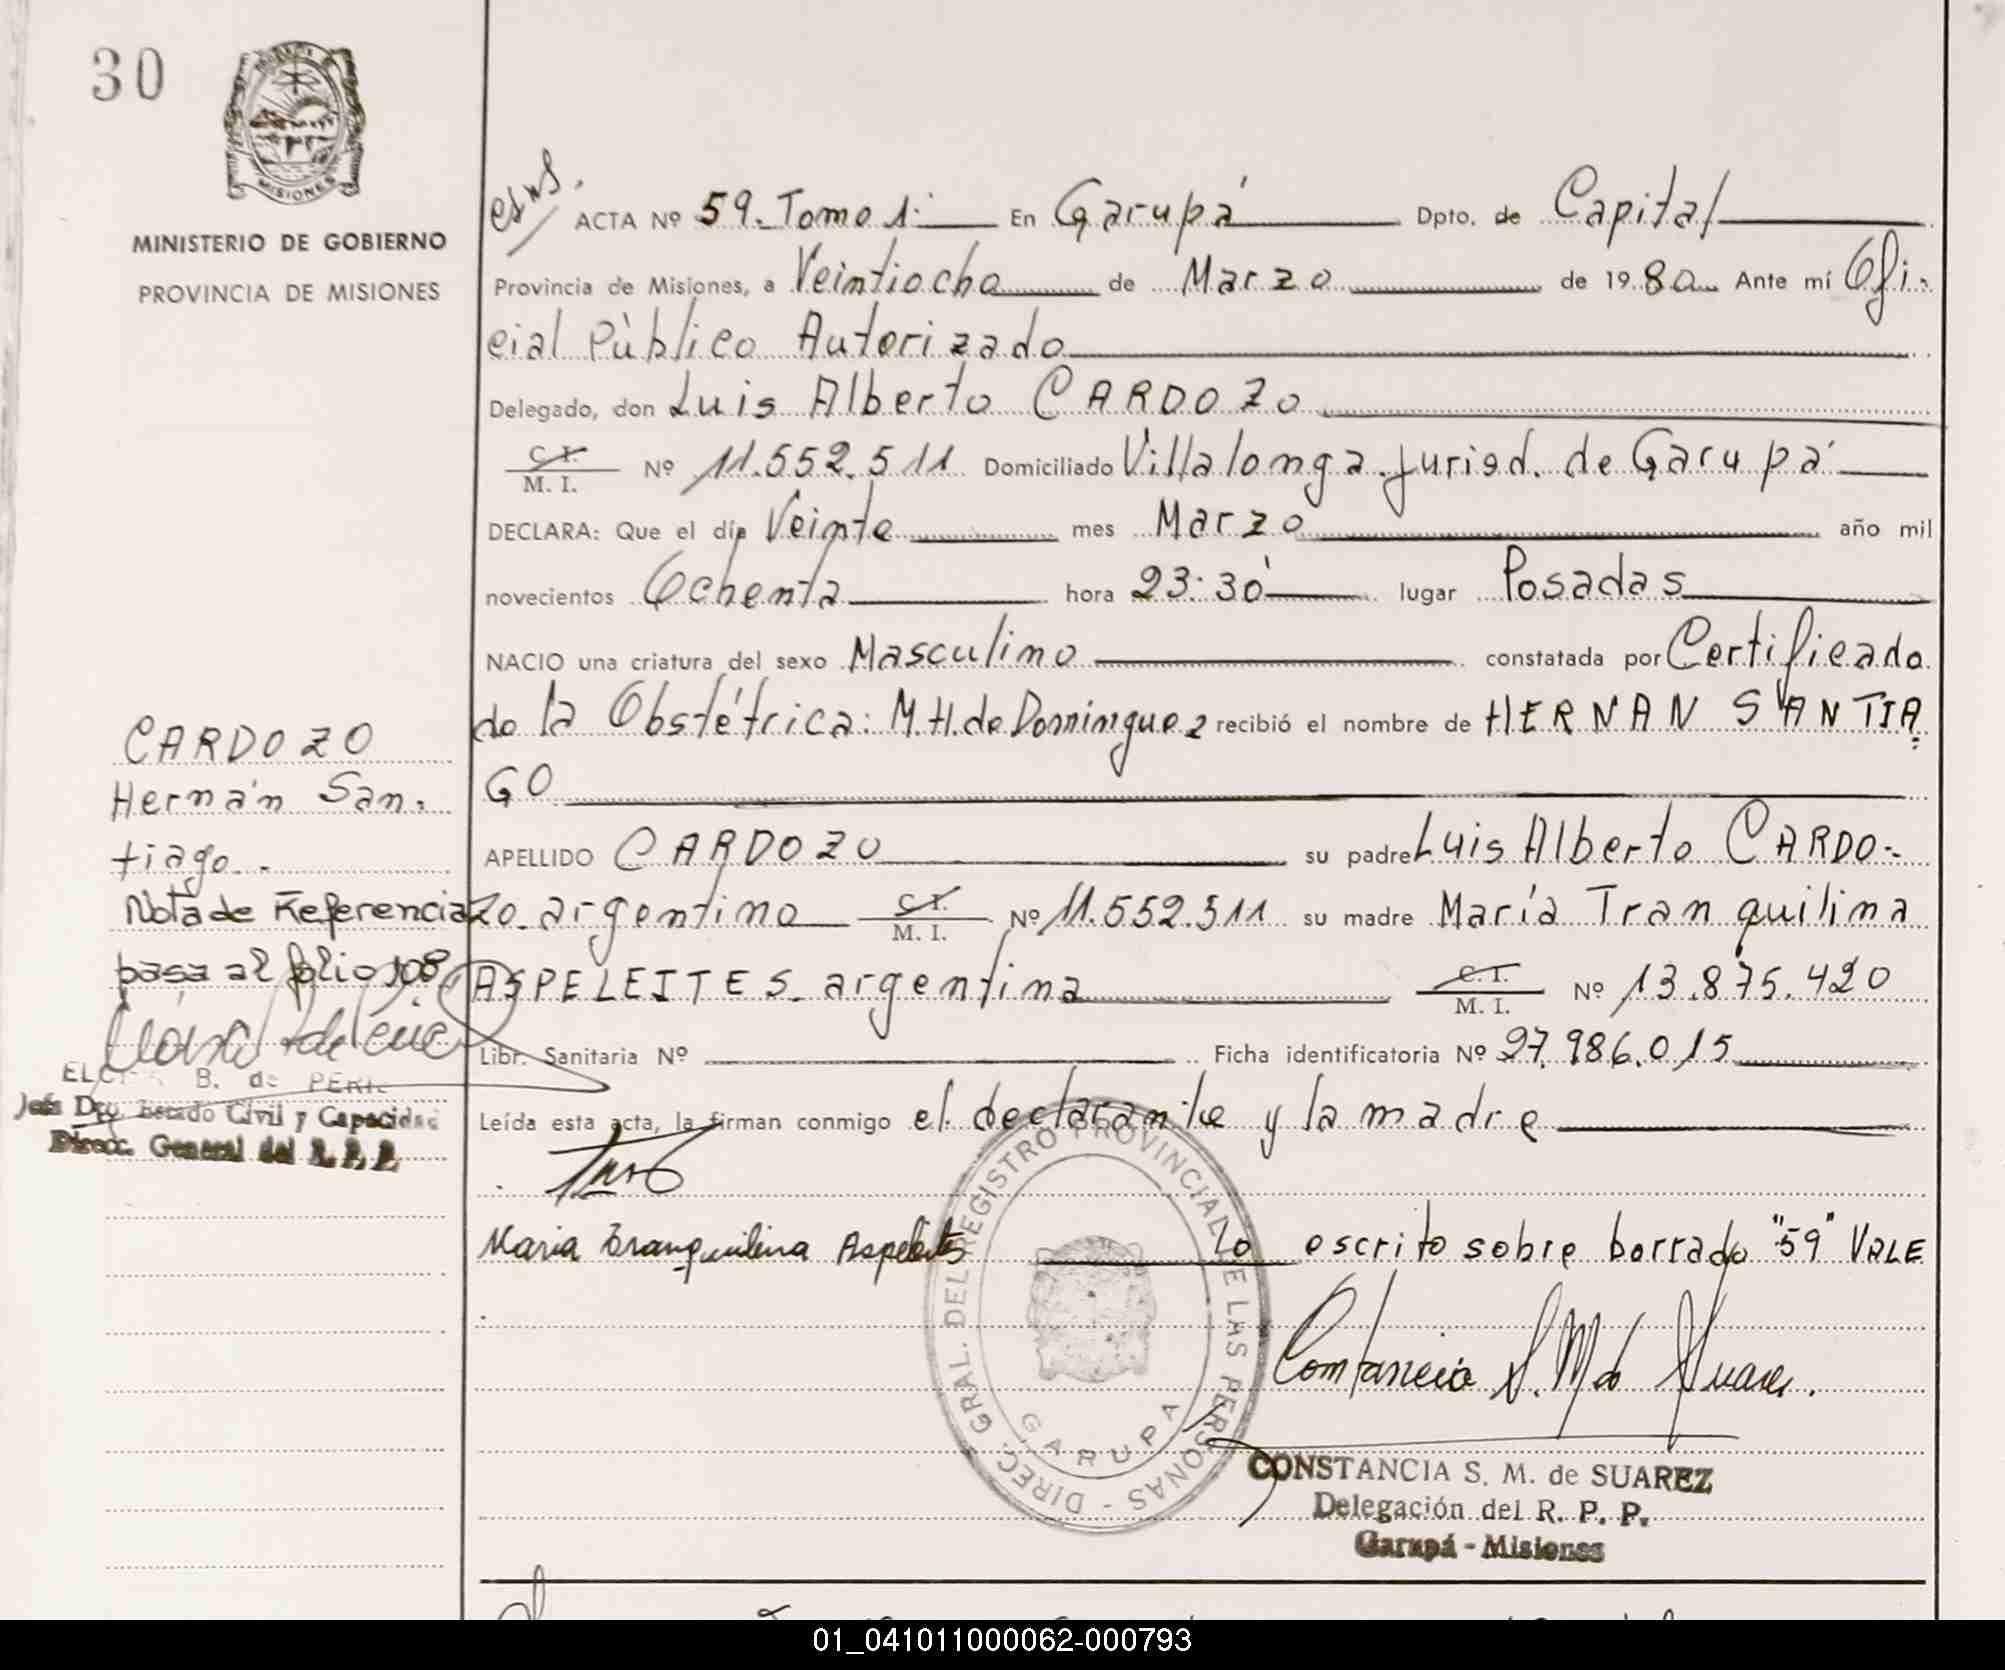 30
MISIONES
MINISTERIO DE GOBIERNO
PROVINCIA DE MISIONES
ACTA Nº 59. Tomo 1: En Garupá Dpto. de Capital
Provincia de Misiones, a Veintiocho de Marzo de 1980 Ante mí Ofi-
cial Público Autorizado
Delegado, don Luis Alberto CARDOZO
C. I. / M. I. Nº 11.552.511 Domiciliado Villalonga. jurisd. de Garupá
DECLARA: Que el día Veinte mes Marzo año mil
novecientos Ochenta hora 23:30 lugar Posadas
NACIO una criatura del sexo Masculino constatada por Certificado
de la Obstétrica: M.H. de Dominguez recibió el nombre de HERNAN SANTIA
GO
APELLIDO CARDOZO su padre Luis Alberto CARDO-
zo. argentino C. I. / M. I. Nº 11.552.511 su madre María Tranquilina
ASPELEITES. argentina C. I. / M. I. Nº 13.875.420
Libr. Sanitaria Nº Ficha identificatoria Nº 27.986.015
Leída esta acta, la firman conmigo el declarante y la madre
Maria Tranquilina Aspeleites Lo escrito sobre borrado "59" VALE
Constancia S. M. de Suarez.
CONSTANCIA S. M. de SUAREZ
Delegación del R. P. P.
Garupá - Misiones
DIREC. GRAL. DEL REGISTRO PROVINCIAL DE LAS PERSONAS - GARUPA
CARDOZO
Hernán San-
tiago.-
Nota de Referencia
pasa al folio 108
B. de PERIE
Jefe Dto. Estado Civil y Capacidad
Direcc. General del R. P. P.
01_041011000062-000793